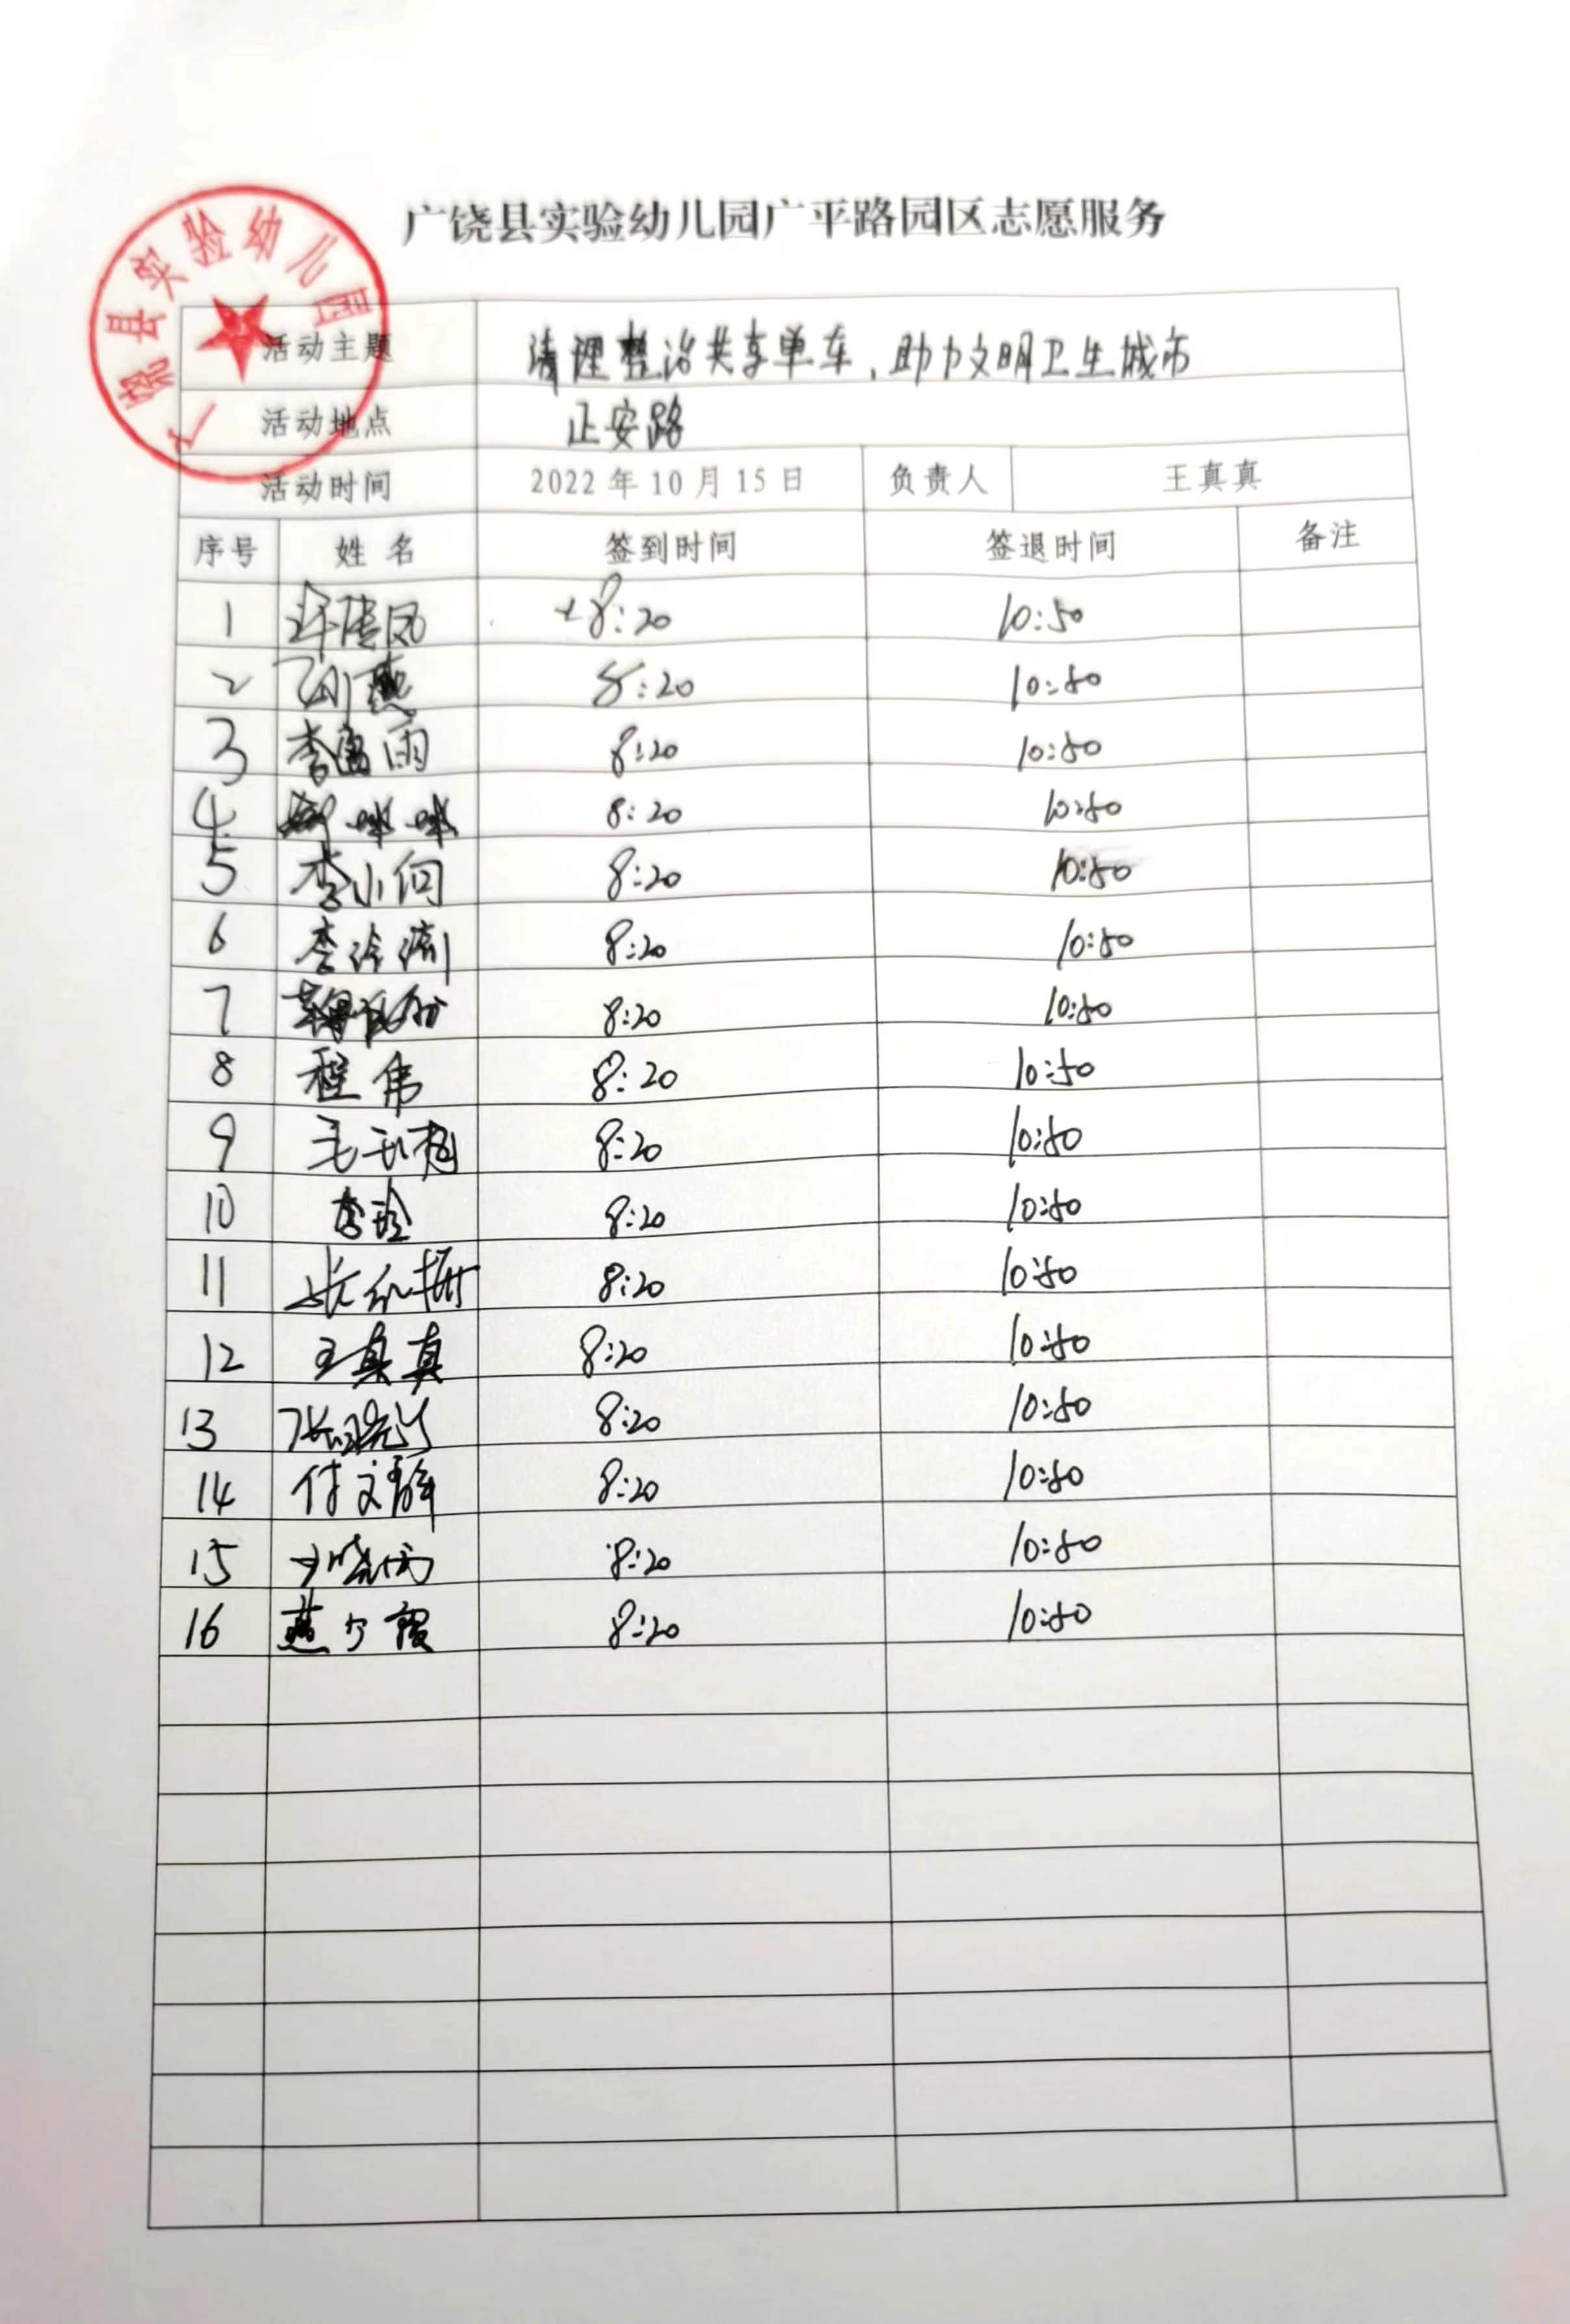 广饶县实验幼儿园
广饶县实验幼儿园广平路园区志愿服务
活动主题 清理整治共享单车,助力文明卫生城市
活动地点 正安路
活动时间 2022年10月15日 负责人 王真真
序号 姓名 签到时间 签退时间 备注
1 8:20 10:50
2 8:20 10:50
3 8:20 10:50
4 8:20 10:50
5 李小何 8:20 10:50
6 8:20 10:50
7 8:20 10:50
8 程伟 8:20 10:50
9 8:20 10:50
10 李玲 8:20 10:50
11 8:20 10:50
12 王真真 8:20 10:50
13 8:20 10:50
14 付文静 8:20 10:50
15 8:20 10:50
16 8:20 10:50